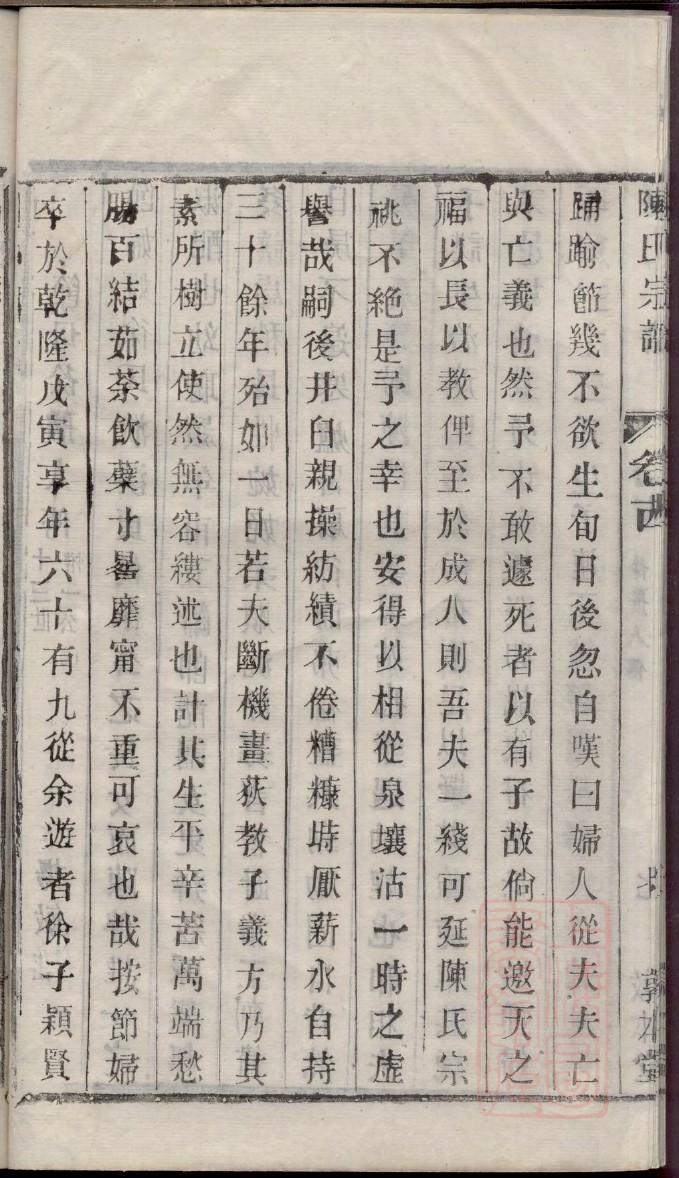 陳氏宗譜 卷古 敦本堂
踊踰節幾不欲生旬日後忽自嘆曰婦人從夫夫亡
與亡義也然予不敢遽死者以有子故倘能邀天之
福以長以教俾至於成人則吾夫一綫可延陳氏宗
祧不絶是予之幸也安得以相從泉壤沽一時之虛
譽哉嗣後井臼親操紡績不倦糟糠時厭薪水自持
三十餘年殆如一日若夫斷機畫荻教子義方乃其
素所樹立使然無容縷述也計其生平辛苦萬端愁
腸百結茹荼飲蘖寸晷靡甯不重可哀也哉按節婦
卒於乾隆戊寅享年六十有九從余遊者徐子穎賢